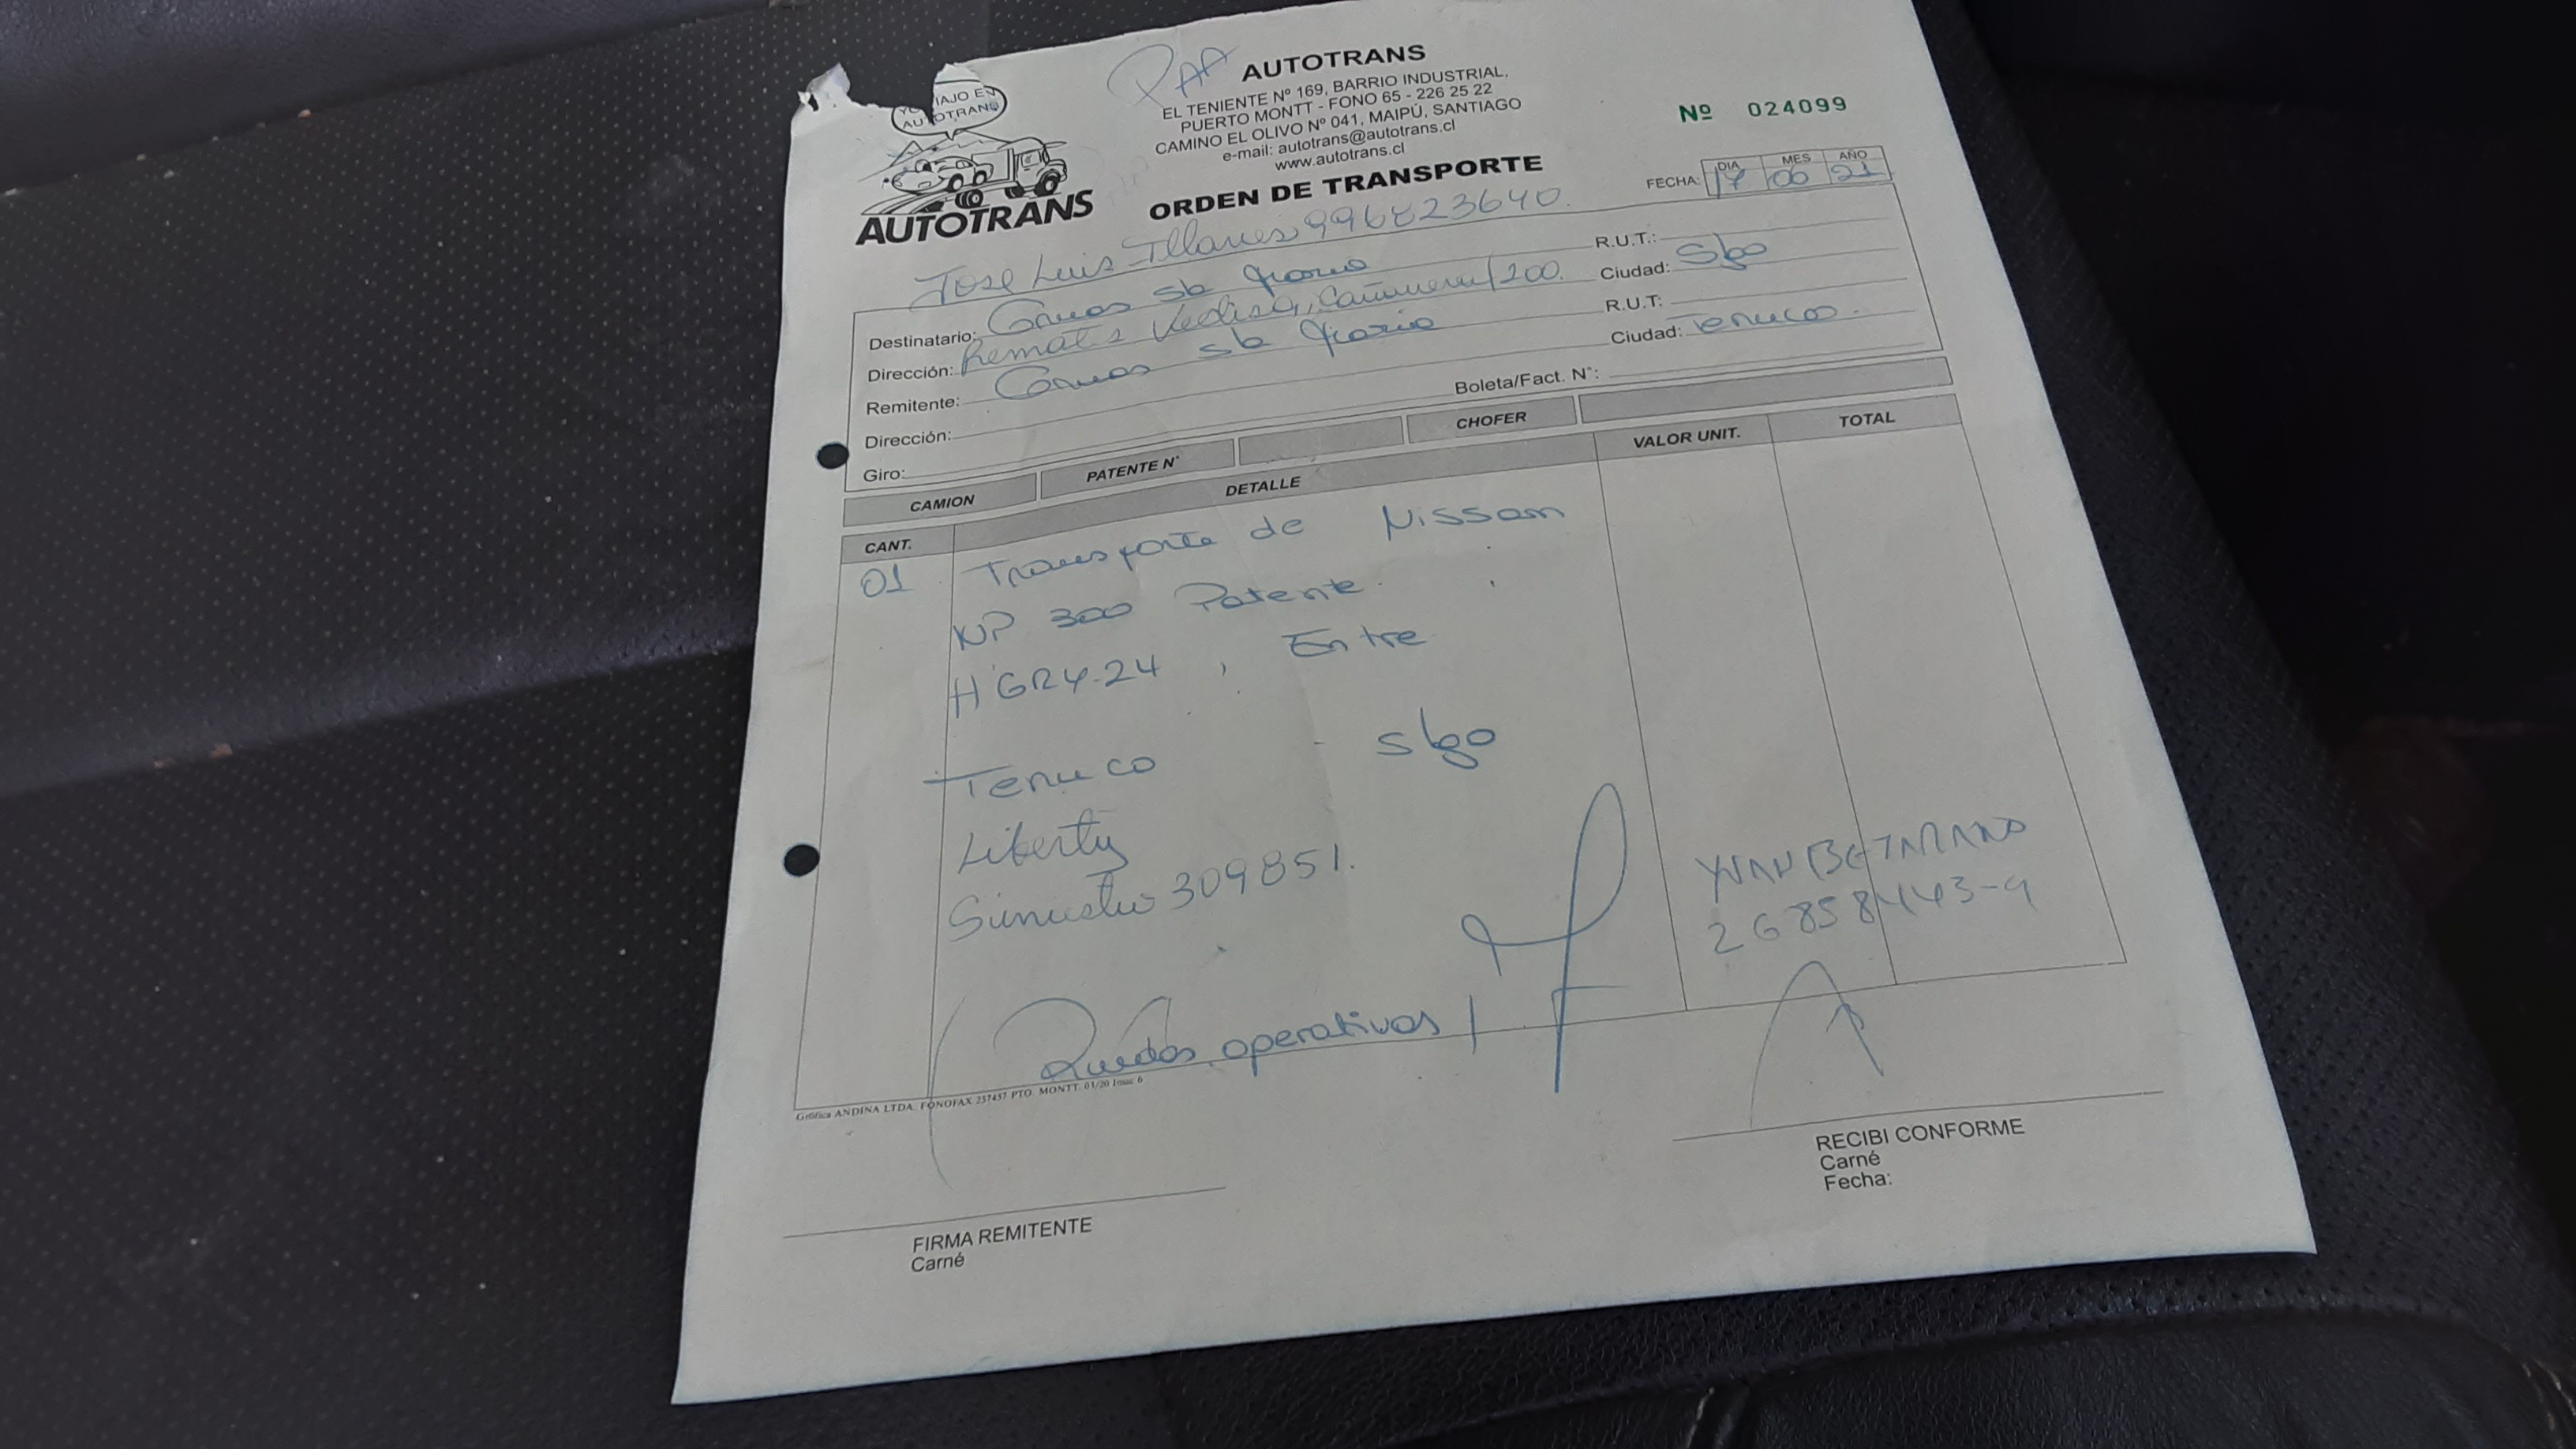 AUTOTRANS
EL TENIENTE Nº 169, BARRIO INDUSTRIAL,
PUERTO MONTT - FONO 65 - 226 25 22
CAMINO EL OLIVO Nº 041, MAIPÚ, SANTIAGO
e-mail: autotrans@autotrans.cl
www.autotrans.cl
ORDEN DE TRANSPORTE
IAJO EN
AUTOTRANS
AUTOTRANS
Nº 024099
DIA MES AÑO
FECHA: 17 06 21
Jose Luis Illanes 996823640.
Destinatario: Gruas sb R.U.T.:
Dirección: Remates Vedisa, 1200. Ciudad: Sbgo
Remitente: Gruas sb R.U.T:
Dirección: Ciudad: Temuco.
Giro: Boleta/Fact. N°:
CAMION PATENTE N° CHOFER
CANT. DETALLE VALOR UNIT. TOTAL
01 Transporte de Nissan
NP 300 Patente.
HGRY-24, Entre
Temuco - Sbgo
Liberty
Siniestro 309851.
26858443-9
Ruedas operativas
Gráfica ANDINA LTDA. FONOFAX 257457 PTO. MONTT. 01/20
FIRMA REMITENTE
Carné
RECIBI CONFORME
Carné
Fecha: